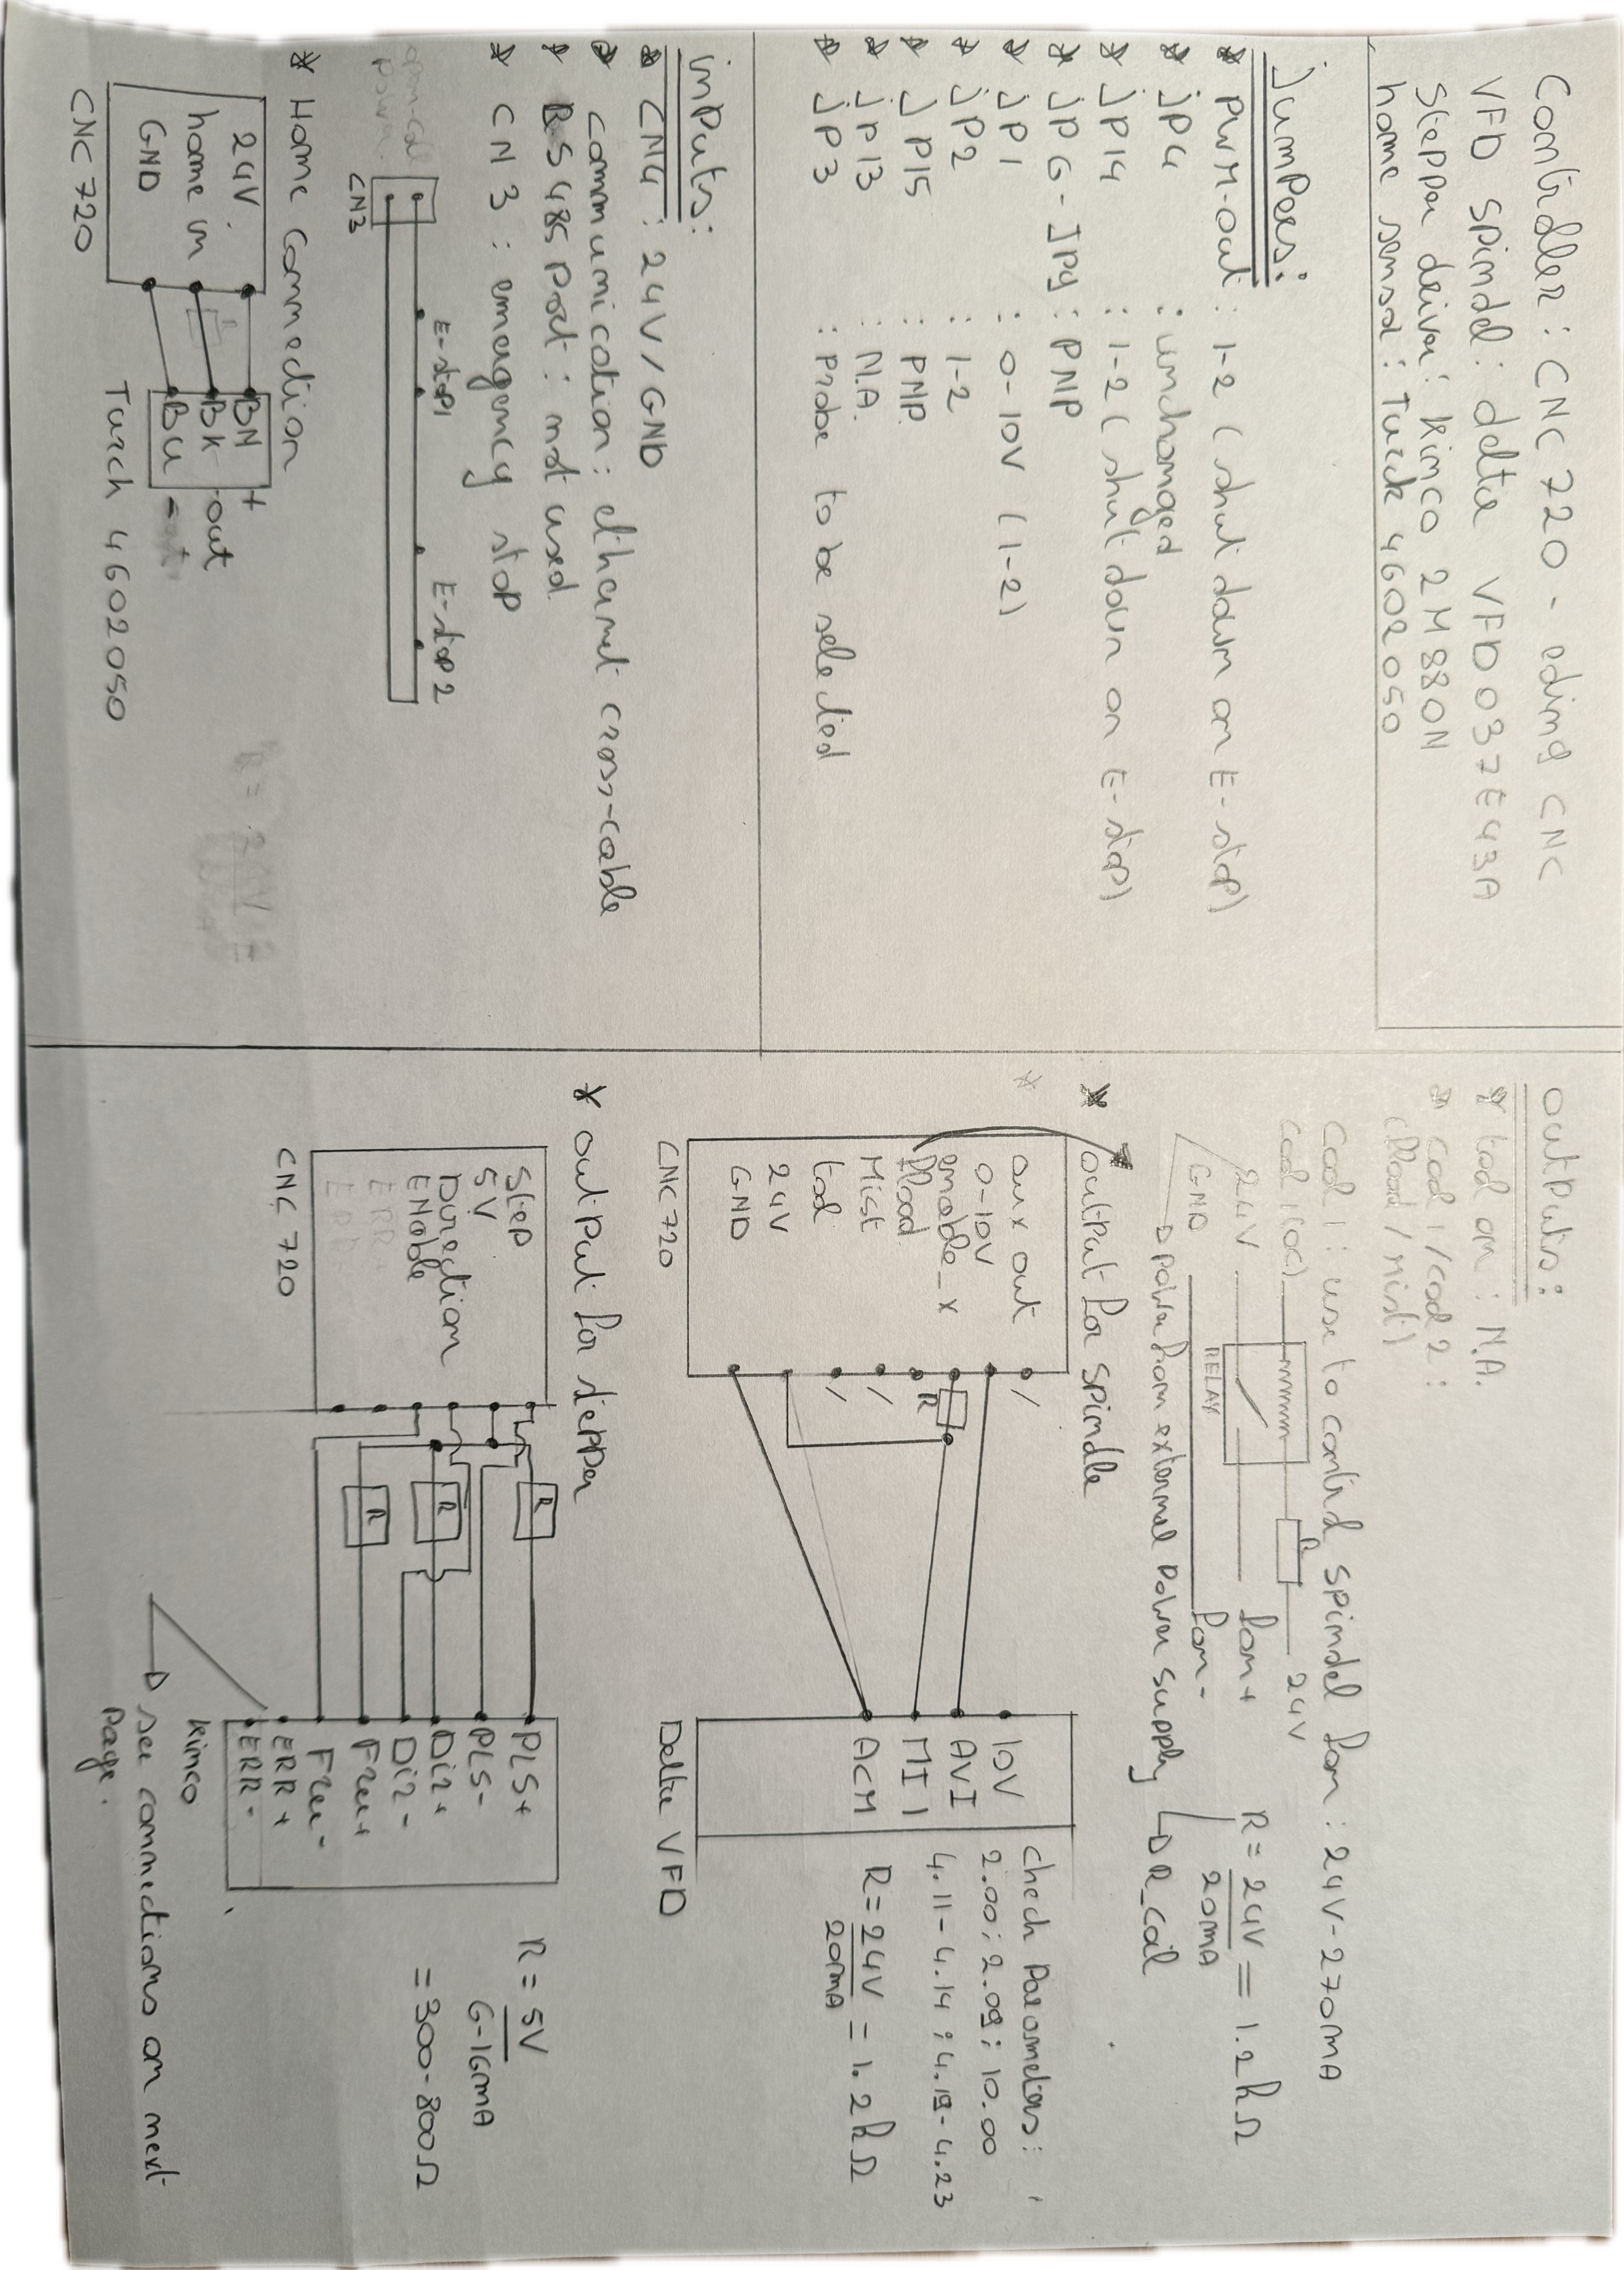 Controller : CNC 720 - eding CNC
VFD spindel : delta VFD037E43A
Stepper driver : kinco 2M880N
home sensor : Turck 4602050
Jumpers:
* PWM-out : 1-2 (shut down on E-stop)
* jp4 : unchanged
* jp14 : 1-2 (shut down on E-stop)
* jp6-jp9 : PNP
* jp1 : 0-10V (1-2)
* jp2 : 1-2
* jp15 : PNP
* jp13 : N.A.
* jp3 : probe to be selected
inputs:
* CN4 : 24V/GND
* communication : ethernet cross-cable
* RS485 port : not used
* CN3 : emergency stop
E-stop1 E-stop2
CN3
* Home connection
24V BN +
home in BK out
GND BU -
CNC 720 Turck 4602050
outputs:
* tool on : N.A.
* cool1/cool2 :
(flood/mist)
cool 1 : use to control spindel fan : 24V-270mA
cool 1(oc) R 24V
24V fan+
RELAY
GND fan-
power from external power supply
R = 24V/20mA = 1.2kΩ
R_coil
* output for spindle
aux out
0-10V
enable_x
flood
Mist
tool
24V
GND
CNC 720
R
10V
AVI
MI1
ACM
Delta VFD
check parameters :
2.00 ; 2.09 ; 10.00
4.11-4.14 ; 4.19-4.23
R = 24V/20mA = 1.2kΩ
* output for stepper
Step
5V
Direction
ENable
ERR+
ERR-
CNC 720
R
R
R
PLS+
PLS-
Dir+
Dir-
Free+
Free-
ERR+
ERR-
kinco
R = 5V/6-16mA
= 300-800Ω
see connections on next
page.